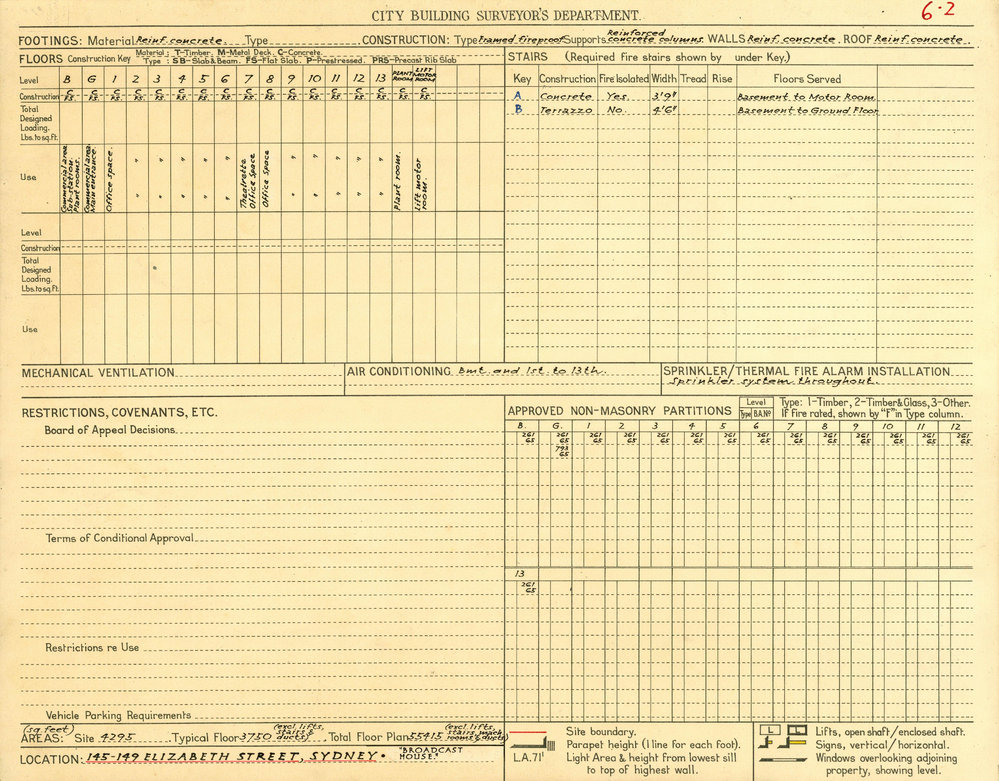 CITY BUILDING SURVEYOR'S DEPARTMENT.
6·2
FOOTINGS: Material Reinf. concrete. Type CONSTRUCTION: Type Framed fireproof Supports Reinforced concrete columns. WALLS Reinf. concrete. ROOF Reinf. concrete.
FLOORS Construction Key Material; T-Timber, M-Metal Deck, C-Concrete.
Type: SB-Slab & Beam. FS-Flat Slab. P-Prestressed. PRS-Precast Rib Slab
Level B G 1 2 3 4 5 6 7 8 9 10 11 12 13 PLANT ROOM LIFT MOTOR ROOM
Construction C C C C C C C C C C C C C C C C C
F.S. F.S. F.S. F.S. F.S. F.S. F.S. F.S. F.S. F.S. F.S. F.S. F.S. F.S. F.S. F.S. F.S.
Total
Designed
Loading.
Lbs.to sq.ft.
Use
Commercial area
Sub-station.
Plant rooms.
Commercial area
Main entrance
Office space.
" " " " " "
" " " " " "
Theatrette
Office Space
Office Space
" " " " "
" " " " "
Plant room.
Lift motor
room.
Level
Construction
Total
Designed
Loading.
Lbs.to sq.ft.
Use
STAIRS (Required fire stairs shown by under Key.)
Key Construction Fire Isolated Width Tread Rise Floors Served
A Concrete Yes 3'9" Basement to Motor Room
B Terrazzo No. 4'6" Basement to Ground Floor
MECHANICAL VENTILATION
AIR CONDITIONING Bmt. and 1st. to 13th.
SPRINKLER/THERMAL FIRE ALARM INSTALLATION
Sprinkler system throughout.
RESTRICTIONS, COVENANTS, ETC.
Board of Appeal Decisions
Terms of Conditional Approval
Restrictions re Use
Vehicle Parking Requirements
APPROVED NON-MASONRY PARTITIONS
Level
Type B.A.No
Type: 1-Timber, 2-Timber & Glass, 3-Other.
If Fire rated, shown by "F" in Type column.
B. G. 1 2 3 4 5 6 7 8 9 10 11 12
261 261 261 261 261 261 261 261 261 261 261 261 261 261
65 65 65 65 65 65 65 65 65 65 65 65 65 65
793
65
13
261
65
(sq. feet)
AREAS: Site 4295 Typical Floor 3750 (excl. lifts, stairs & ducts) Total Floor Plan 55415 (excl. lifts, stairs, mach. rooms & ducts)
LOCATION: 145-149 ELIZABETH STREET, SYDNEY · "BROADCAST HOUSE."
Site boundary.
Parapet height (1 line for each foot).
L.A.71' Light Area & height from lowest sill
to top of highest wall.
L Lifts, open shaft/enclosed shaft.
Signs, vertical/horizontal.
Windows overlooking adjoining
property, showing level.